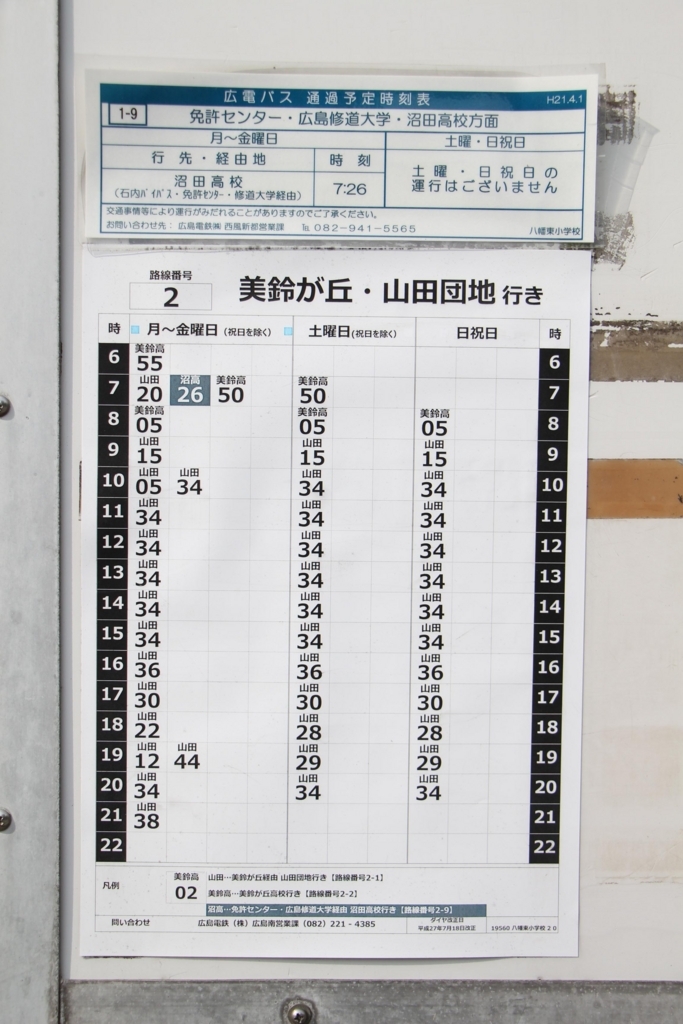 広電バス 通過予定時刻表 H21.4.1
1-9 免許センター・広島修道大学・沼田高校方面
月～金曜日 土曜・日祝日
行先・経由地 時刻
沼田高校 7:26
(石内バイパス・免許センター・修道大学経由)
土曜・日祝日の
運行はございません
交通事情等により運行がみだれることがありますのでご了承ください。
お問い合わせ先：広島電鉄㈱ 西風新都営業課 ℡ 082-941-5565 八幡東小学校
路線番号
2 美鈴が丘・山田団地 行き
時 月～金曜日 (祝日を除く) 土曜日(祝日を除く) 日祝日 時
美鈴高
6 55 6
山田 沼高 美鈴高 美鈴高
7 20 26 50 50 7
美鈴高 美鈴高 美鈴高
8 05 05 05 8
山田 山田 山田
9 15 15 15 9
山田 山田 山田 山田
10 05 34 34 34 10
山田 山田 山田
11 34 34 34 11
山田 山田 山田
12 34 34 34 12
山田 山田 山田
13 34 34 34 13
山田 山田 山田
14 34 34 34 14
山田 山田 山田
15 34 34 34 15
山田 山田 山田
16 36 36 36 16
山田 山田 山田
17 30 30 30 17
山田 山田 山田
18 22 28 28 18
山田 山田 山田 山田
19 12 44 29 29 19
山田 山田 山田
20 34 34 34 20
山田
21 38 21
22 22
凡例 美鈴高 02
山田…美鈴が丘経由 山田団地行き【路線番号2-1】
美鈴高…美鈴が丘高校行き【路線番号2-2】
沼高…免許センター・広島修道大学経由 沼田高校行き【路線番号2-9】
問い合わせ 広島電鉄（株）広島南営業課（082）221-4385
ダイヤ改正日
平成27年7月18日改正
19560 八幡東小学校 2 0